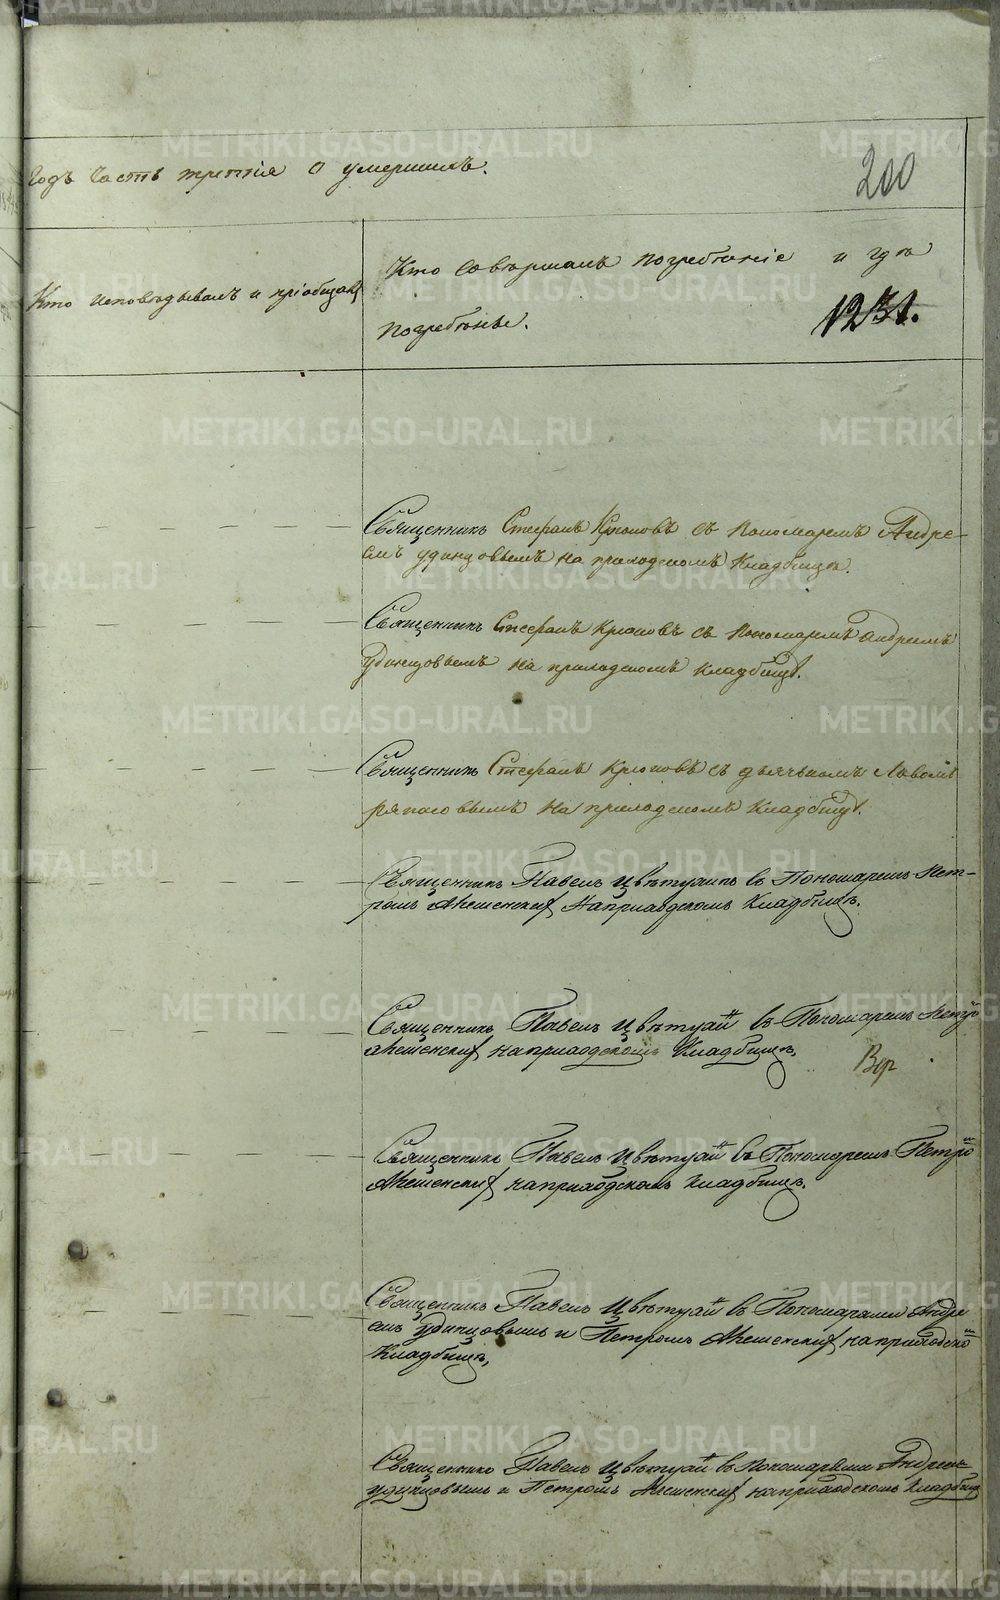 годъ Часть третія о умершихъ.
200
Кто исповѣдывалъ и пріобщалъ
Кто Совершалъ погребеніе и гдѣ
погребенъ.
1231.
Священникъ Стефанъ Крюковъ съ пономаремъ Андре-
емъ удинцовымъ на приходскомъ Кладбищѣ.
Священникъ Стефанъ Крюковъ съ пономаремъ Андреемъ
Удинцовымъ на приходскомъ кладбищѣ.
Священникъ Стефанъ Крюковъ съ дьячкомъ
на приходскомъ Кладбищѣ.
Священникъ Павелъ Цвѣтухинъ съ Пономаремъ Пет-
ромъ на приходскомъ Кладбищѣ.
Священникъ Павелъ съ Пономаремъ Петро
на приходскомъ Кладбищѣ.
Вер
Священникъ Павелъ съ Пономаремъ Петро
на приходскомъ Кладбищѣ.
Священникъ Павелъ съ Пономарями Андре
емъ Удинцовымъ и Петромъ на приходско
Кладбищѣ,
Священникъ Павелъ съ пономарями Андреемъ
удинцовымъ и Петромъ на приходскомъ Кладбищ
METRIKI.GASO-URAL.RU